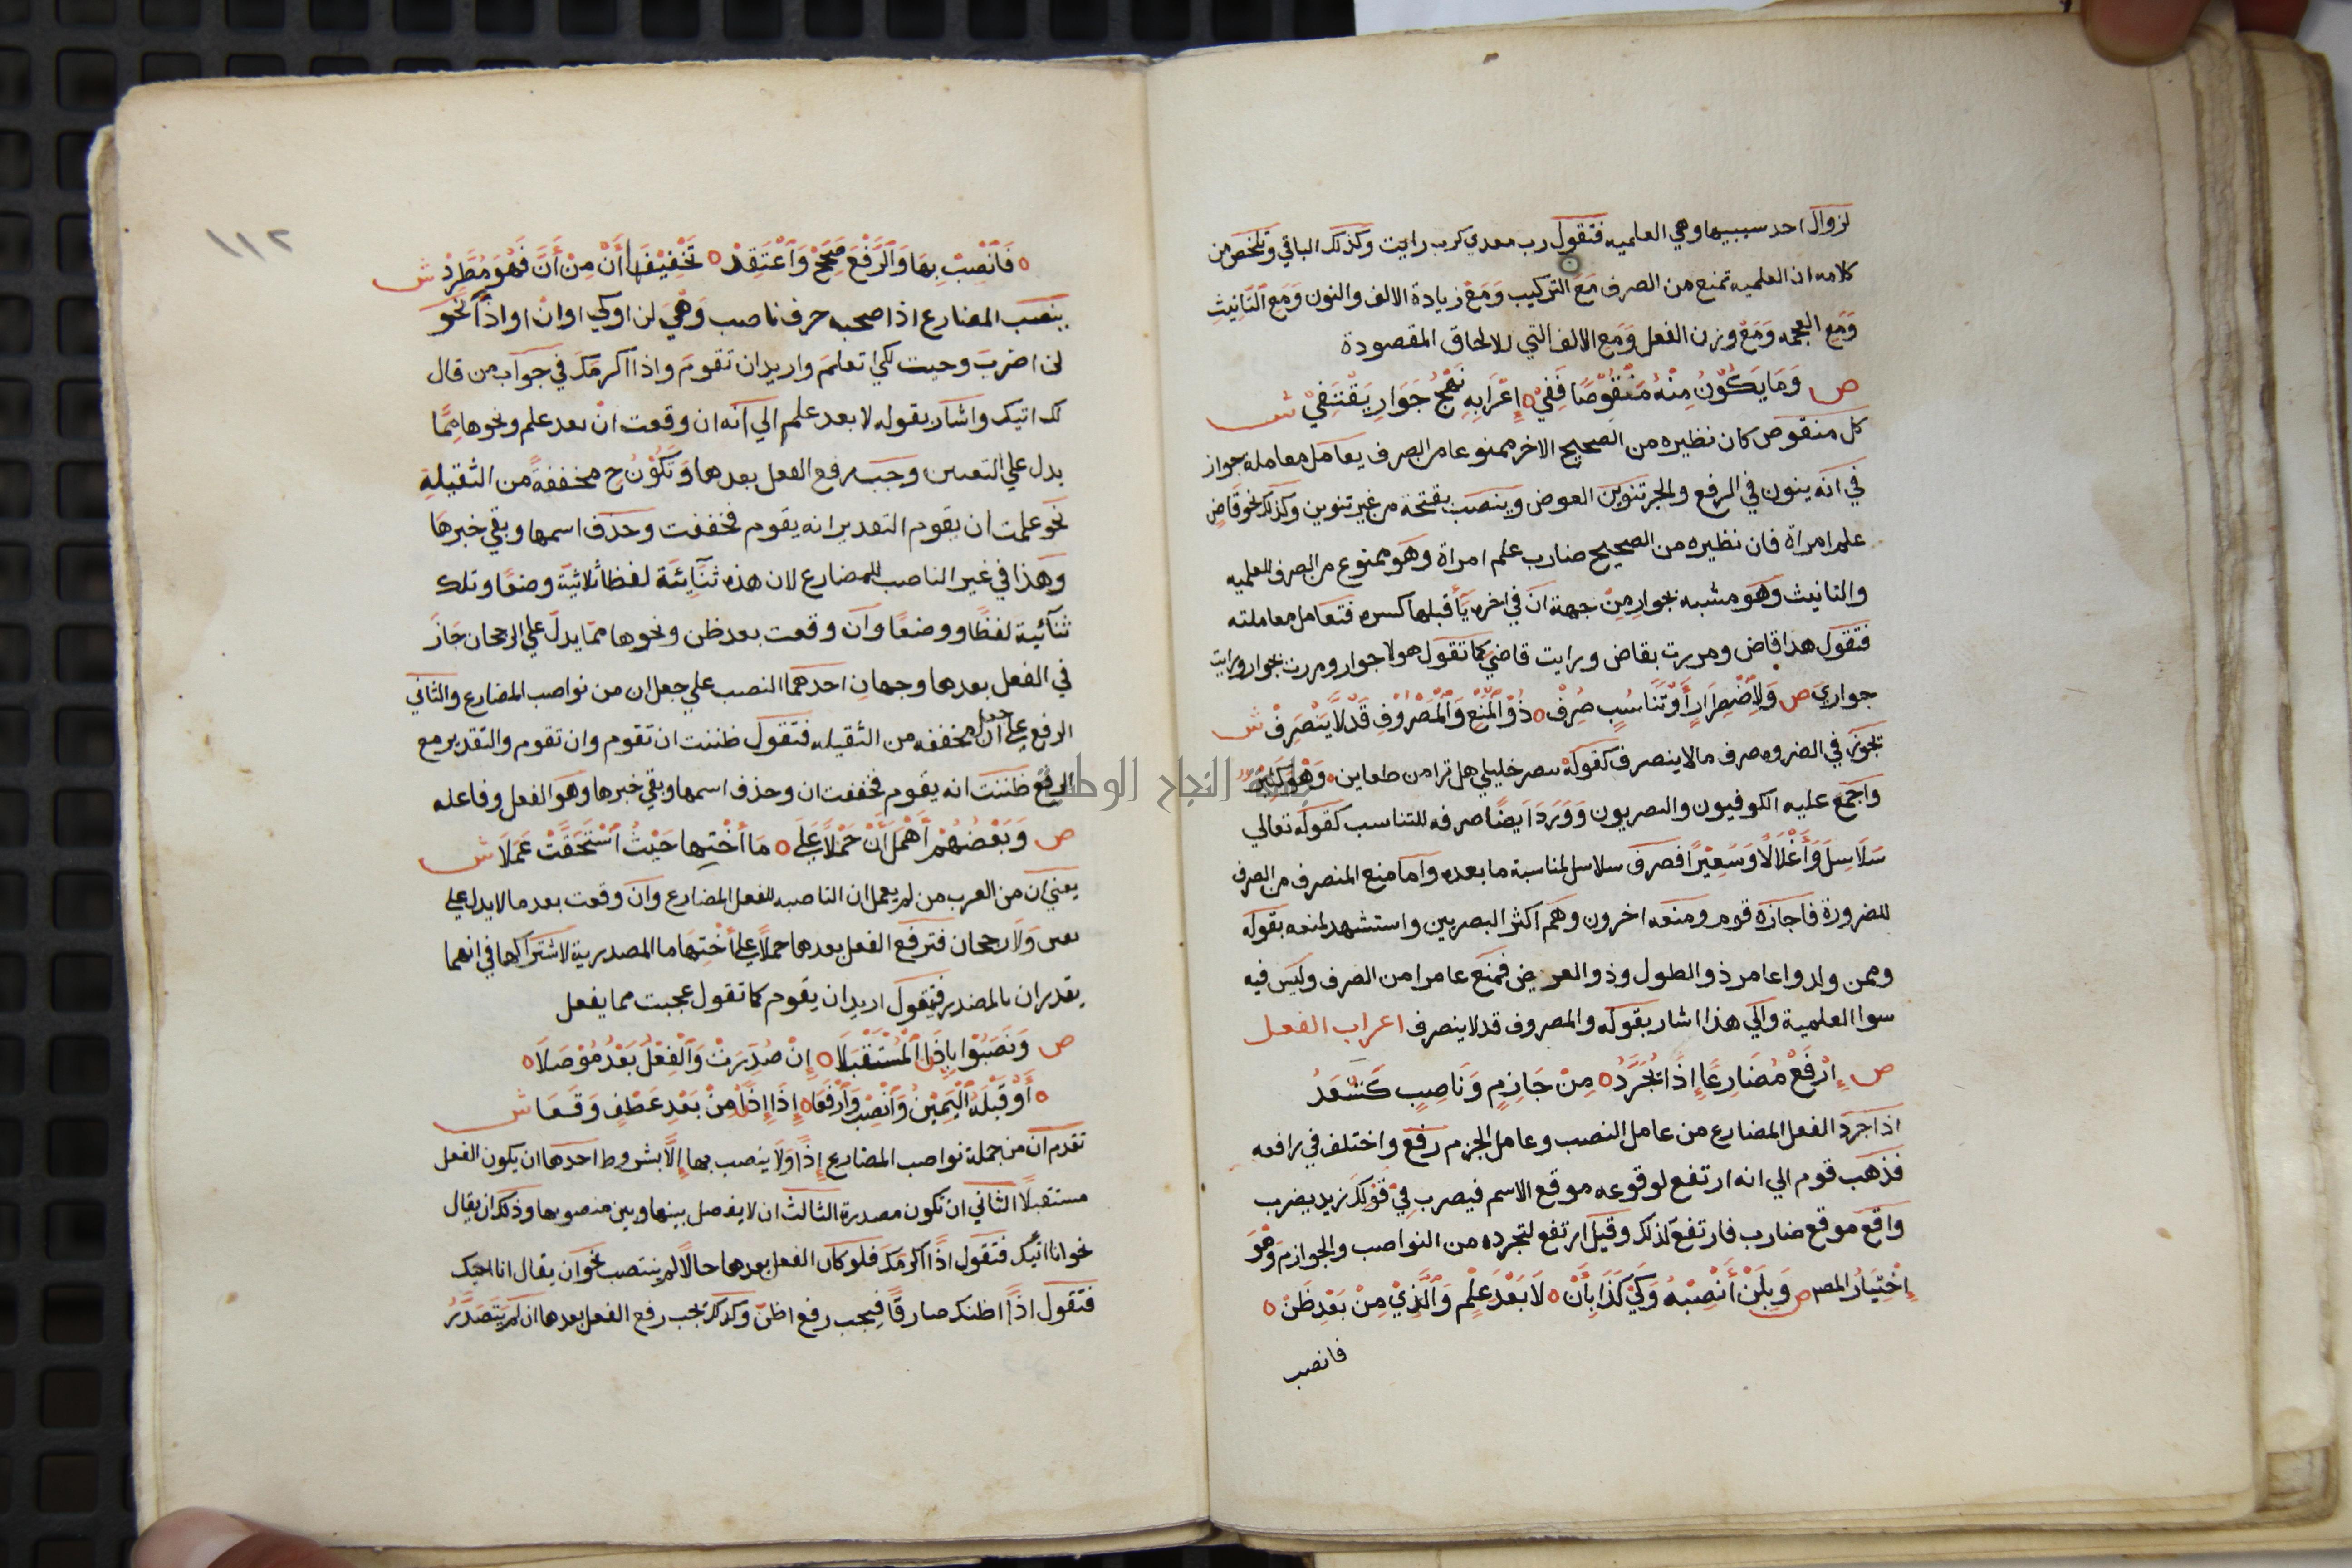 لزوال احد سببيها وهي العلميه فتقول رب معدي كرب رايت وكذلك الباقي وتلخص من
كلامه ان العلميه تمنع من الصرف مَعَ التركيب وَمَعَ زيادة الالف والنون وَمَعَ التَانِيثِ
وَمَع العجمه وَمَعَ وزن الفعل وَمَع الالف التي للالحاق المقصودة
ص وَمَا يَكُوْنُ مِنْهُ مَنْقُوْصًا فَفِيْ ٥ إِعْرَابِهِ نَهْجَ جَوَارٍ يَقْتَفِيْ ش
كل منقوص كان نظيره من الصحيح الاخر ممنوعا من الصرف يعامل معاملة جوار
في انه ينون في الرفع والجر تنوين العوض وينصب بفتحة من غير تنوين وكذلك نحو قاضٍ
علم امراة فان نظيره من الصحيح ضارب علم امراة وهو ممنوع من الصرف للعلميه
والتانيث وهو مشبه بجوارٍ مِنْ جهة ان في اخره يَأ قبلها كسره فتعامل معاملته
فتقول هذا قاض ومررت بقاض ورايت قاضيَ كما تقول هولا جوار ومررت بجوار ورايت
جواريَ ص وَلِاضْطِرَارٍ أَوْ تَنَاسُبٍ صُرِفْ ٥ ذُوْ الْمَنْعِ وَالْمَصْرُوْفُ قَدْ لَا يَنْصَرِفْ ش
تجوز في الضروه صرف ما لا ينصرف كقوله تبصر خليلي هل ترا من ظعاين ٥ وَهُوَ كَثِيْرٌ
واجمع عليه الكوفيون والبصريون وَوَرَدَ ايضًا صرفه للتناسب كقوله تعالي
سَلَاسِلَ وَأَغْلَالًا وَسَعِيْرًا فصرف سلاسل لمناسبة ما بعده واما منع المنصرف من الصرف
للضرورة فاجازه قوم ومنعه اخرون وهم اكثر البصريين واستشهد لمنعه بقوله
وممن ولدوا عامر ذو الطول وذو العرض فمنع عامرا من الصرف وليس فيه
سوا العلمية والي هذا اشار بقوله والمصروف قد لا ينصرف اعراب الفعل
ص إِرْفَعْ مُضَارِعًا إِذَا يُجَرَّدُ ٥ مِنْ جَازِمٍ وَنَاصِبٍ كَتَسْعَدُ
اذا جرد الفعل المضارع من عامل النصب وعامل الجزم رفع واختلف في رافعه
فذهب قوم الي انه ارتفع لوقوعه موقع الاسم فيضرب في قولك زيد يضرب
واقع موقع ضارب فارتفع لذلك وقيل ارتفع لتجرده من النواصب والجوازم وَهُوَ
إِخْتِيَارُ المص ص وَبِلَنْ أَنْصِبْهُ وَكَيْ كَذَا بِأَنْ ٥ لَا بَعْدَ عِلْمٍ وَالَّذِيْ مِنْ بَعْدِ ظَنْ ٥
فانصب
١١٢
٥ فَانْصِبْ بِهَا وَالرَّفْعَ صَحِّحْ وَاعْتَقِدْ ٥ تَخْفِيْفَهَا أَنْ مِنْ أَنَّ فَهُوَ مُطَّرِدْ ش
ينصب المضارع اذا صحبه حرف ناصب وَهْيَ لن اوكي او انْ او اذًا نحو
لن اضربَ وجيت لكي اتعلمَ واريد ان تقومَ واذا اكرمَك في جواب من قال
لك اتيك واشار بقوله لا بعد علم الي انه ان وقعت انْ بعد علم ونحوها مِمَّا
يدل علي التعين وجب رفع الفعل بعدها وَتَكُوْنُ ح مخففةً من الثقيلةِ
نحو علمت ان يقوم التقدير انه يقوم فخففت وحذف اسمها وبقي خبرها
وهذا في غير الناصب للمضارع لان هذه ثنائية لفظاً ثلاثيّة وضعًا وتلك
ثنآئية لفظًا ووضعًا وان وقعت بعد ظن ونحوها ممّا يدلّ علي الرجحان جَازَ
في الفعل بعدها وجهانِ احدهما النصب علي جعل ان من نواصب المضارع والثاني
الرفع علي جعل ان مخففه من الثقيله فتقول ظننت ان تقوم وان تقوم والتقدير مع
الرفع ظننت انه يقوم فخففت ان وحذف اسمها وبقي خبرها وهو الفعل وفاعله
ص وَبَعْضُهُمْ أَهْمَلَ أَنْ حَمْلًا عَلَى ٥ مَا أُخْتِهَا حَيْثُ اسْتَحَقَّتْ عَمَلَا ش
يعني ان من العرب من لم يعمل ان الناصبه للفعل المضارع وان وقعت بعد ما لا يدل علي
يقين وَلَا رجحان فترفع الفعل بعدها حملًا علي اُخْتِهَا ما المصدرية لاشتراكهما في انهما
يقدران بالمصدر فتقول اريد ان يقوم كما تقول عجبت مما يفعل
ص وَنَصَبُوْا بِإِذًا الْمُسْتَقْبَلَا ٥ إِنْ صُدِّرَتْ وَالْفِعْلُ بَعْدُ مُوْصَلَا ٥
٥ أَوْ قَبْلَهُ الْيَمِيْنُ وَانْصِبْ وَارْفَعَا ٥ إِذَا إِذًا مِنْ بَعْدِ عَطْفٍ وَقَعَا ش
تقدم ان من جملة نواصب المضارع إِذًا وَلَا ينصب بها إِلَّا بشروط احدها ان يكون الفعل
مستقبلًا الثاني ان تكون مصدرة الثالث ان لا يفصل بينها وبين منصوبها وذلك ان يقال
نحو انا اتيك فتقول اذًا اكرمَك فلو كان الفعل بعدها حالًا لم ينتصب نحو ان يقال انا احبك
فتقول اذًا اظنك صادقًا فيجب رفع اظنّ وكذلك تجب رفع الفعل بعدها ان لم يَتَصَدَّرُ
جامعة النجاح الوطنية